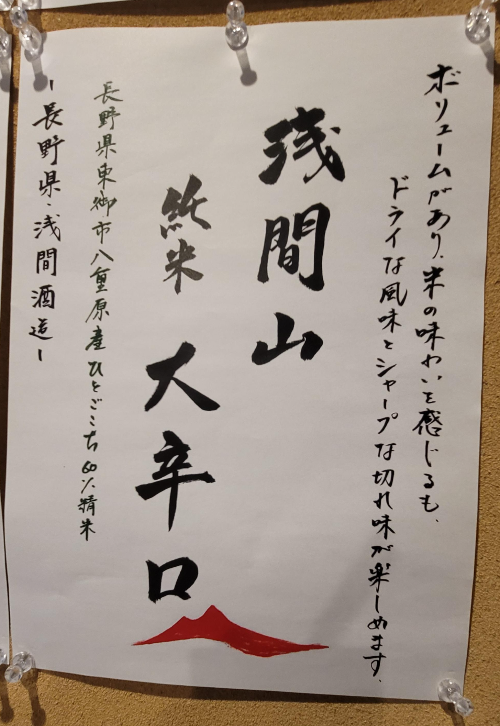 ボリュームがあり、米の味わいを感じるも、
ドライな風味とシャープな切れ味が楽しめます。
浅間山
純米 大辛口
長野県東御市八重原産ひとごこち60%精米
ー長野県・浅間酒造ー